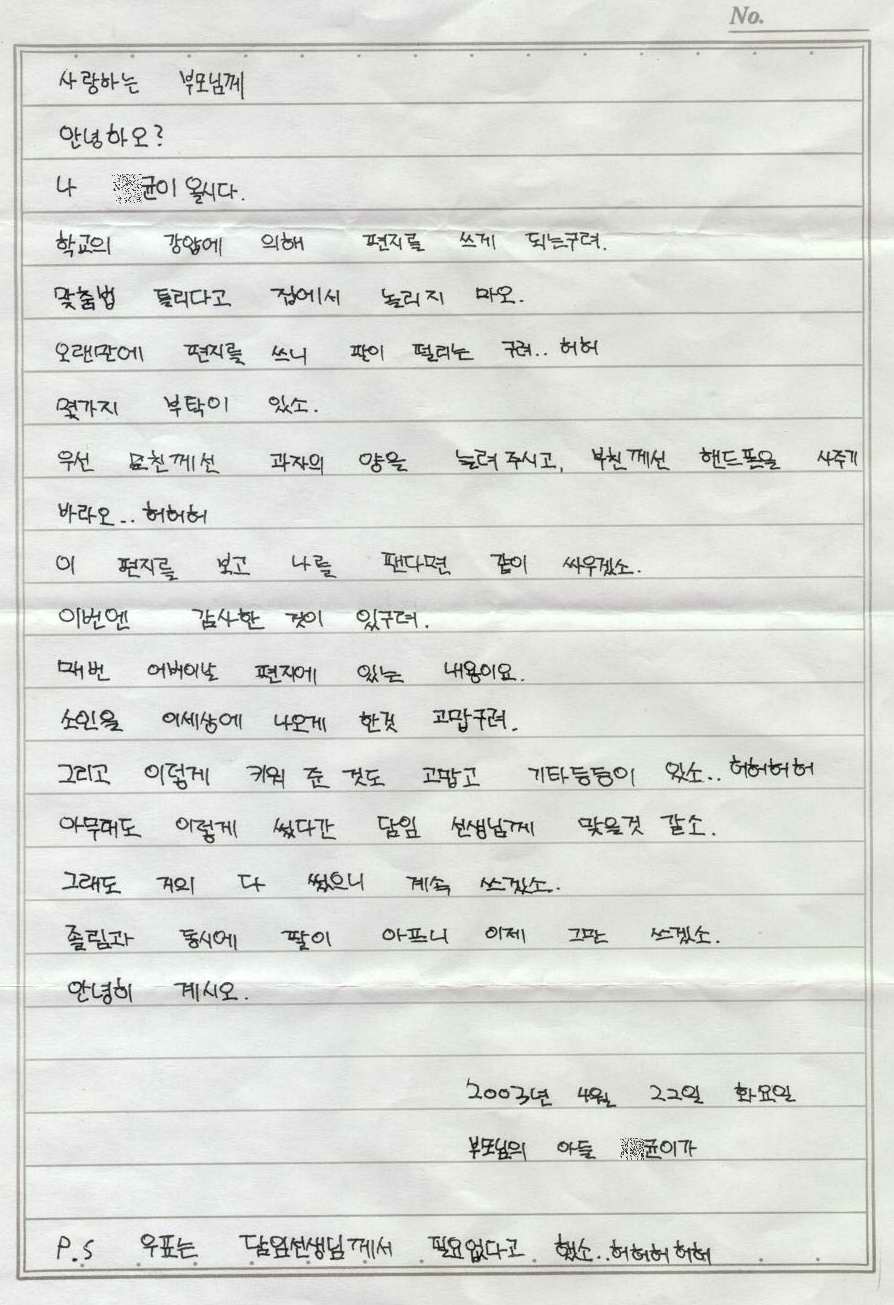 No.
사랑하는 부모님께
안녕하오?
나 균이 올시다.
학교의 강압에 의해 편지를 쓰게 되는구려.
맞춤법 틀리다고 집에서 놀리지 마오.
오랜만에 편지를 쓰니 팔이 떨리는 구려.. 허허
몇가지 부탁이 있소.
우선 모친께선 과자의 양을 늘려주시고, 부친께선 핸드폰을 사주기
바라오.. 허허허
이 편지를 보고 나를 팬다면 같이 싸우겠소.
이번엔 감사한 것이 있구려.
매번 어버이날 편지에 있는 내용이요.
소인을 이세상에 나오게 한것 고맙구려.
그리고 이렇게 키워 준 것도 고맙고 기타등등이 있소.. 허허허허
아무래도 이렇게 썼다간 담임 선생님께 맞을것 같소.
그래도 거의 다 썼으니 계속 쓰겠소.
졸림과 동시에 팔이 아프니 이제 그만 쓰겠소.
안녕히 계시오.
2003년 4월 22일 화요일
부모님의 아들 균이가
P.S 우표는 담임선생님께서 필요없다고 했소..허허허허허